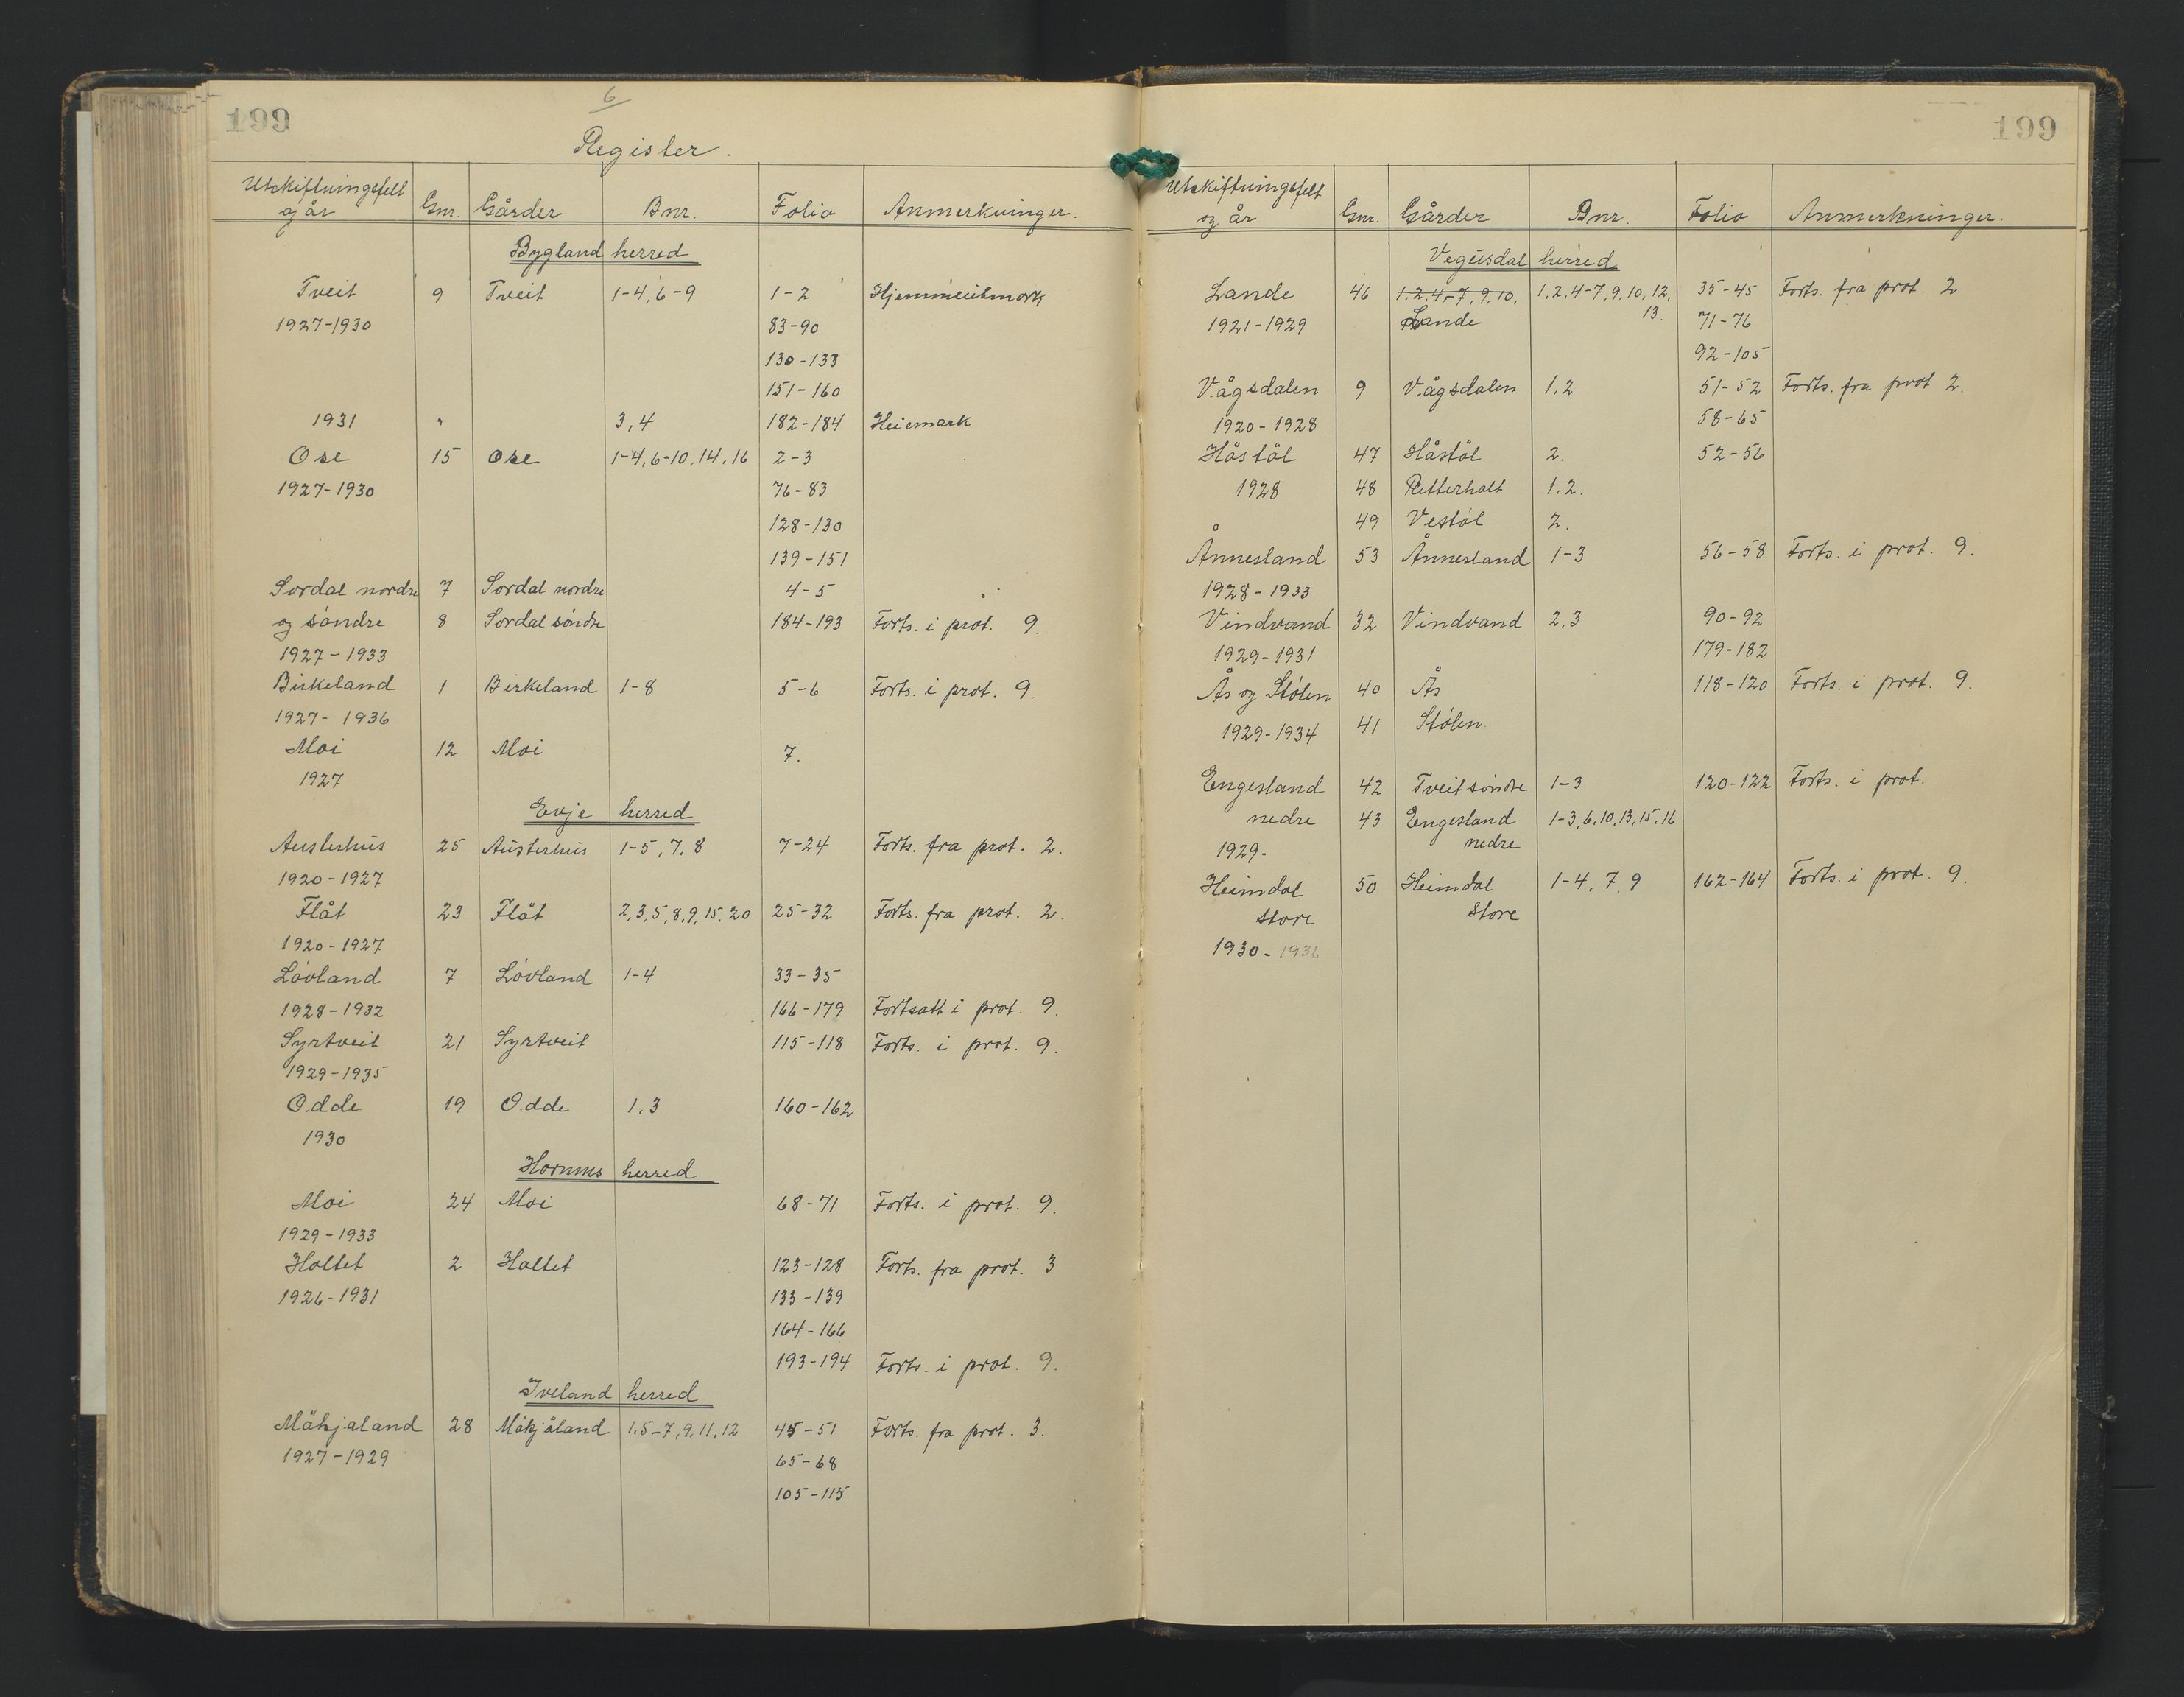 199
6
Register.
Utskiftningsfelt og år | Gnr. | Gårder | Bnr. | Folio | Anmerkninger.
Bygland herred
Tveit | 9 | Tveit | 1-4, 6-9 | 1-2 | Hjemmeutmark
1927-1930 | 83-90
130-133
151-160
1931 | " | 3, 4 | 182-184 | Heiemark
Ose | 15 | Ose | 1-4, 6-10, 14, 16 | 2-3
1927-1930 | 76-83
128-130
139-151
Sordal nordre | 7 | Sordal nordre | 4-5
og söndre | 8 | Sordal söndre | 184-193 | Forts. i prot. 9.
1927-1933
Birkeland | 1 | Birkeland | 1-8 | 5-6 | Forts. i prot. 9.
1927-1936
Moi | 12 | Moi | 7.
1927
Evje herred
Austerhus | 25 | Austerhus | 1-5, 7, 8 | 7-24 | Forts. fra prot. 2.
1920-1927
Flåt | 23 | Flåt | 2, 3, 5, 8, 9, 15, 20 | 25-32 | Forts. fra prot. 2.
1920-1927
Lövland | 7 | Lövland | 1-4 | 33-35
1928-1932 | 166-179 | Fortsatt i prot. 9.
Syrtveit | 21 | Syrtveit | 115-118 | Forts. i prot. 9.
1929-1935
Odde | 19 | Odde | 1, 3 | 160-162
1930
Hornnes herred
Moi | 24 | Moi | 68-71 | Forts. i prot. 9.
1929-1933
Holtet | 2 | Holtet | 123-128 | Forts. fra prot. 3
1926-1931 | 133-139
164-166
193-194 | Forts. i prot. 9.
Iveland herred
Måkjaland | 28 | Måkjåland | 1, 5-7, 9, 11, 12 | 45-51 | Forts. fra prot. 3.
1927-1929 | 65-68
105-115
199
Utskiftningsfelt og år | Gnr. | Gårder | Bnr. | Folio | Anmerkninger.
Vegusdal herred
Lande | 46 | 1, 2, 4-7, 9, 10, | 1, 2, 4-7, 9, 10, 12, | 35-45 | Forts. fra prot. 2
1921-1929 | Lande | 13. | 71-76
92-105
Vågsdalen | 9 | Vågsdalen | 1, 2 | 51-52 | Forts. fra prot 2.
1920-1928 | 58-65
Håstöl | 47 | Håstöl | 2. | 52-56
1928 | 48 | Retterholt | 1, 2.
49 | Vestöl | 2.
Ånnesland | 53 | Ånnesland | 1-3 | 56-58 | Forts. i prot. 9.
1928-1933
Vindvand | 32 | Vindvand | 2, 3 | 90-92
1929-1931 | 179-182
Ås og Stölen | 40 | Ås | 118-120 | Forts. i prot. 9.
1929-1934 | 41 | Stölen
Engesland | 42 | Tveit söndre | 1-3 | 120-122 | Forts. i prot.
nedre | 43 | Engesland | 1-3, 6, 10, 13, 15, 16
1929- | nedre
Heimdal | 50 | Heimdal | 1-4, 7, 9 | 162-164 | Forts. i prot. 9.
Store | Store
1930-1936